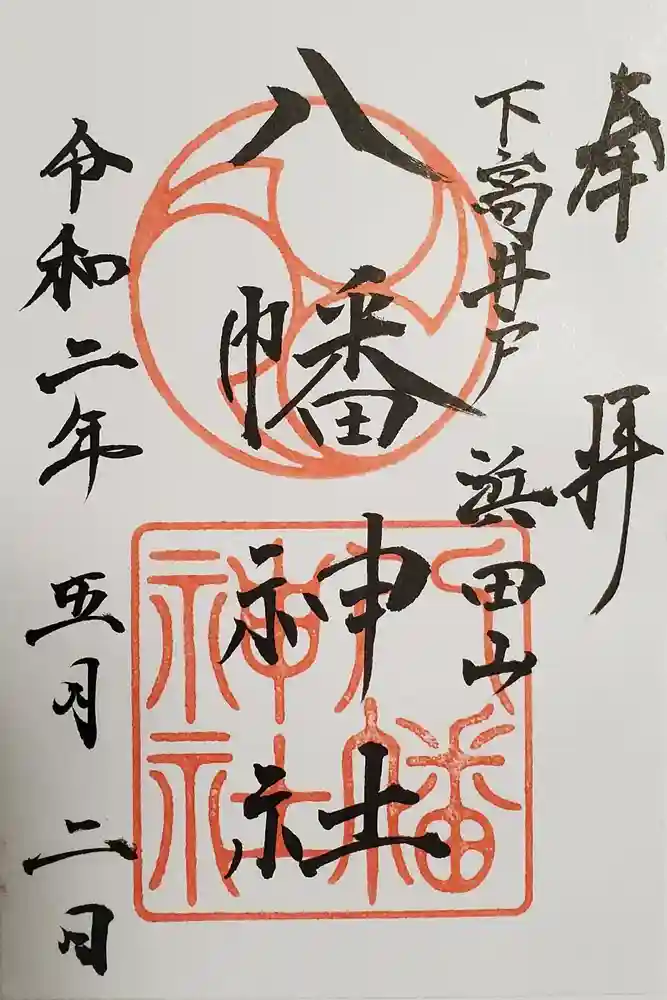 奉拝
下高井戸 浜田山
八幡神社
八幡神社
令和二年 五月 二日